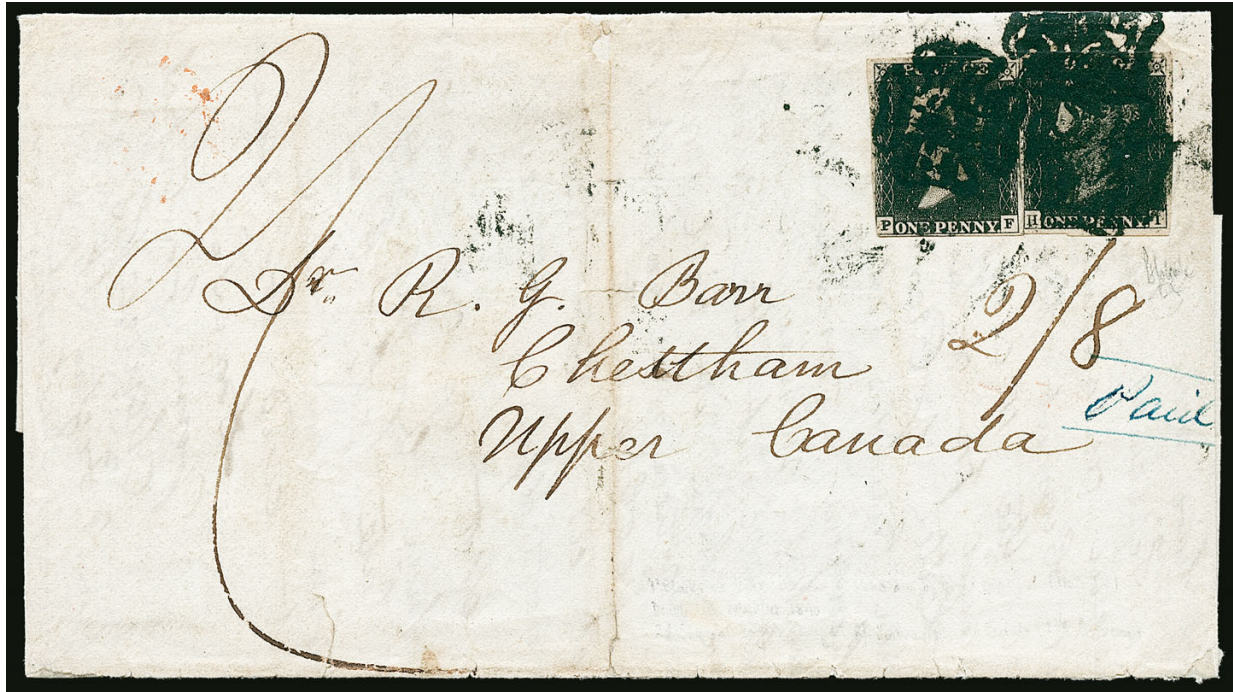 POSTAGE
P ONE PENNY F
H ONE PENNY I
2/
Dr. R. G. Barr
Chestham
Upper Canada
2/8
Paid